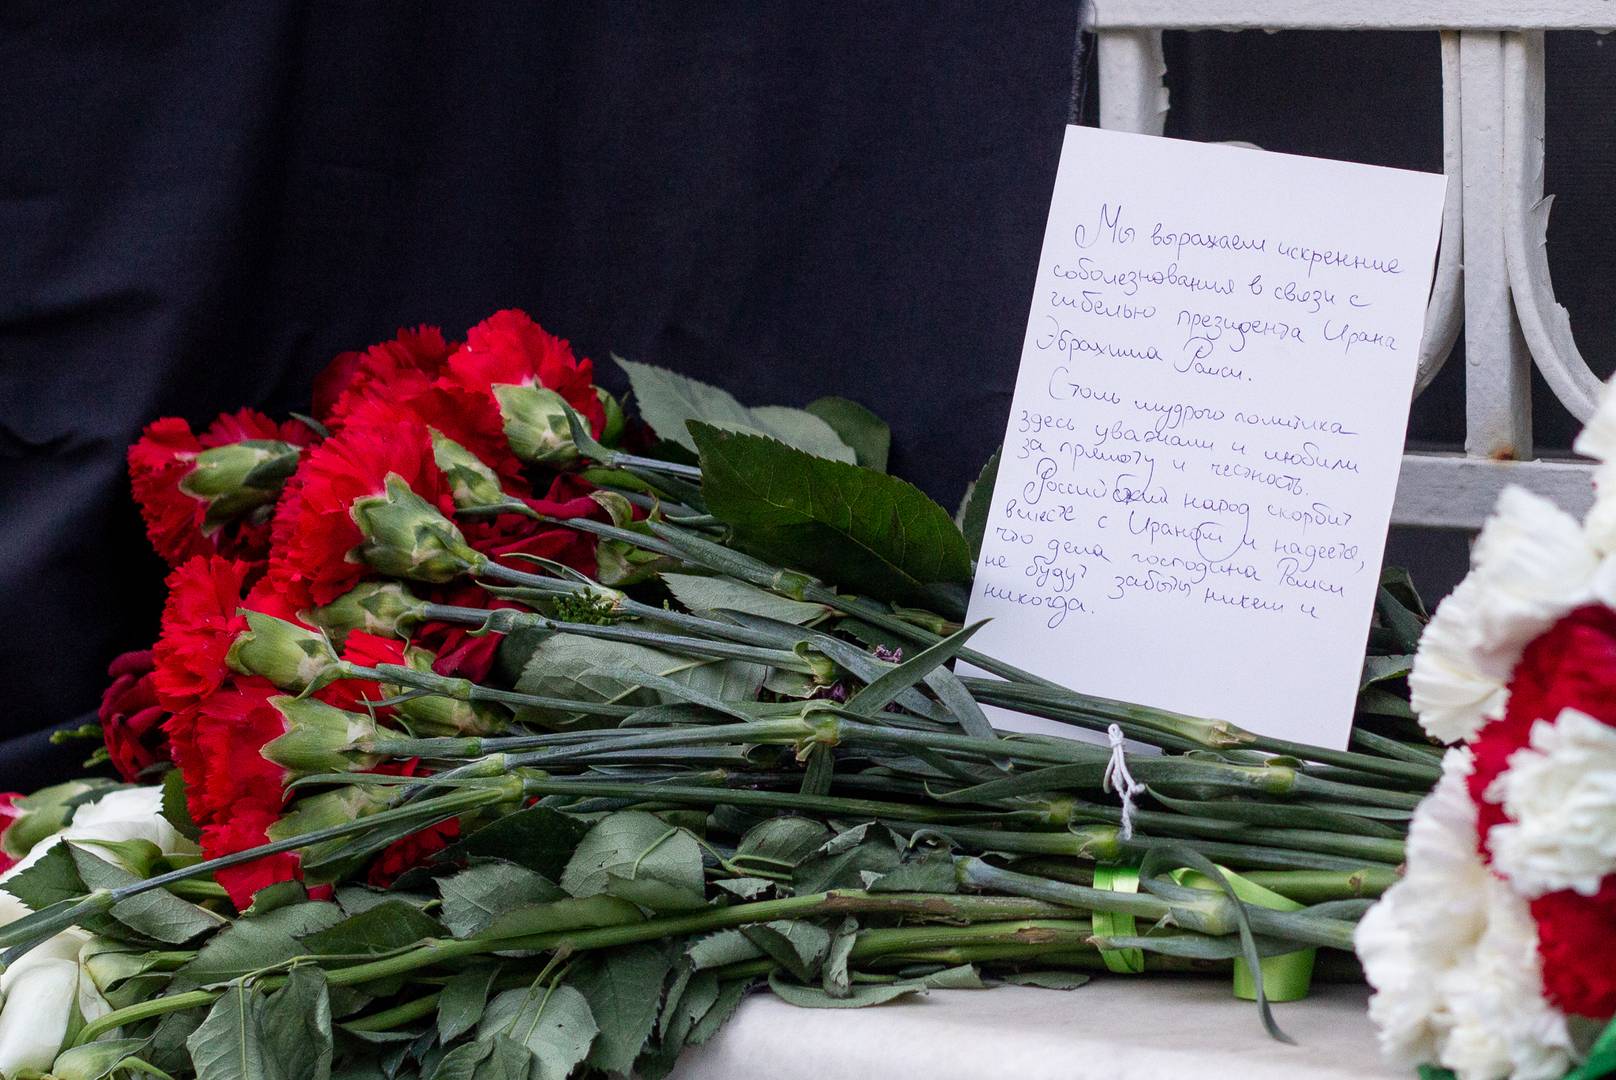 Мы выражаем искренние
соболезнования в связи с
гибелью президента Ирана
Эбрахима Раиси.
Столь мудрого политика
здесь уважали и любили
за прямоту и честность.
Российский народ скорбит
вместе с Ираном и надеется,
что дела господина Раиси
не будут забыты никем и
никогда.